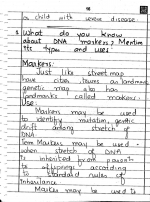 a child with severe disease.
What do you know
about DNA markers? Mention
its types and uses.
Markers:
Just like street map
have cities towns as landmark
genetic map also has
landmarks called markers.
Use:
Markers may be used
to identify mutation, genetic
drift among stretch of
DNA
Term Markers may be used
when stretch of DNA
is inherited from parent
to offspring according
to standard rules of
Inheritance
Markers may be used to